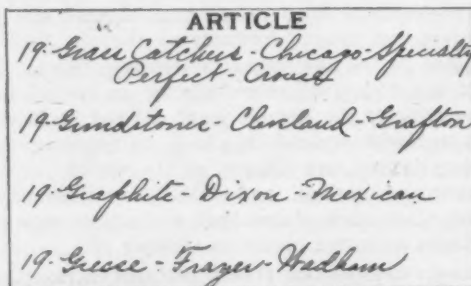 ARTICLE
19-Grass Catchers-Chicago-Specialty
Perfect-Crown
19-Grindstones-Cleveland-Grafton
19-Graphite-Dixon-Mexican
19-Grease-Frazer-Wadham